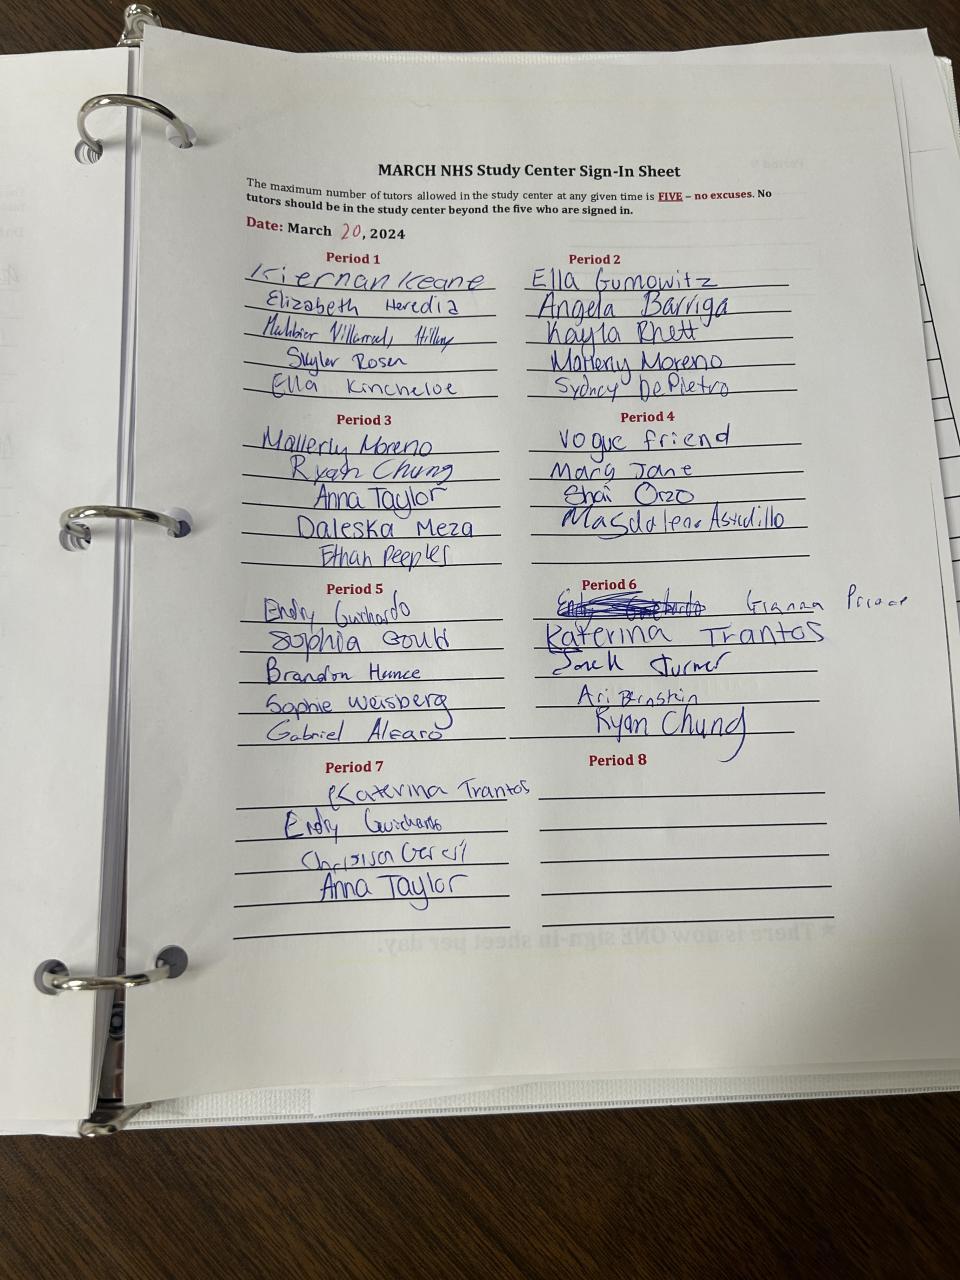 MARCH NHS Study Center Sign-In Sheet
The maximum number of tutors allowed in the study center at any given time is FIVE – no excuses. No
tutors should be in the study center beyond the five who are signed in.
Date: March 20, 2024
Period 1
Kiernan Keane
Elizabeth Heredia
Villarreal, Hillary
Skyler Rosen
Ella Kincheloe
Period 2
Ella Gumowitz
Angela Barriga
Kayla Rhett
Mallerly Moreno
Sydney DePietro
Period 3
Mallerly Moreno
Ryan Chung
Anna Taylor
Daleska Meza
Ethan Peeples
Period 4
Vogue friend
Mary Jane
Shai Orzo
Magdalena Astudillo
Period 5
Endry Guichardo
Sophia
Brandon Hance
Sophie Weisberg
Gabriel Alfaro
Period 6
Gianna
Katerina Trantos
Turner
Ari Bernstein
Ryan Chung
Period 7
Katerina Trantos
Endry Guichardo
Anna Taylor
Period 8
* There is now ONE sign-in sheet per day.